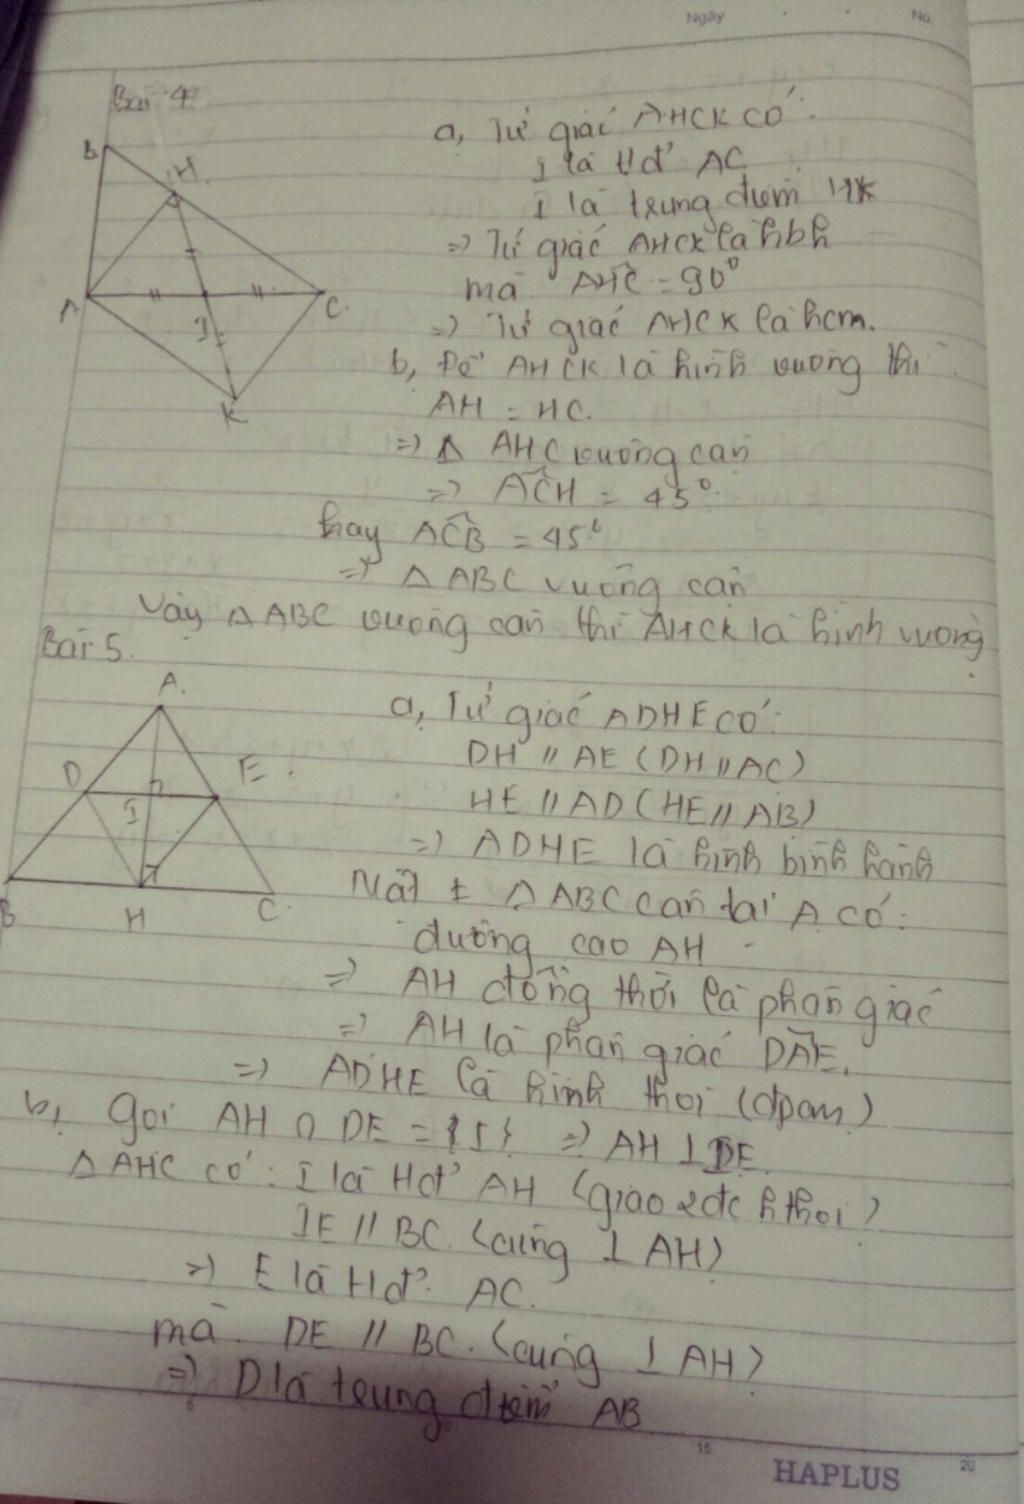 Ngày No.
Bài 4
B
H
A
I
C
K
a, Tứ giác AHCK có:
I là tđ AC
I là trung điểm HK
=> Tứ giác AHCK là hbh
mà AHC = 90°
=> Tứ giác AHCK là hcn.
b, Để AHCK là hình vuông thì
AH = HC.
=> Δ AHC vuông cân
=> ACH = 45°
hay ACB = 45°
=> Δ ABC vuông cân
Vậy Δ ABC vuông cân thì AHCK là hình vuông
Bài 5.
A
D
E
I
B
H
C
a, Tứ giác ADHE có:
DH // AE (DH // AC)
HE // AD (HE // AB)
=> ADHE là hình bình hành
Mặt ≠ Δ ABC cân tại A có:
đường cao AH
=> AH đồng thời là phân giác
=> AH là phân giác DAE.
=> ADHE là hình thoi (đpcm)
b, Gọi AH ∩ DE = {I} => AH ⊥ DE.
Δ AHC có: I là tđ AH (giao 2 đc hthoi)
IE // BC. (cùng ⊥ AH)
=> E là tđ AC.
mà DE // BC. (cùng ⊥ AH)
=> D là trung điểm AB
15
20
HAPLUS